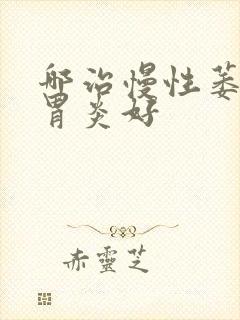 哪治慢性萎
胃炎好
赤靈芝